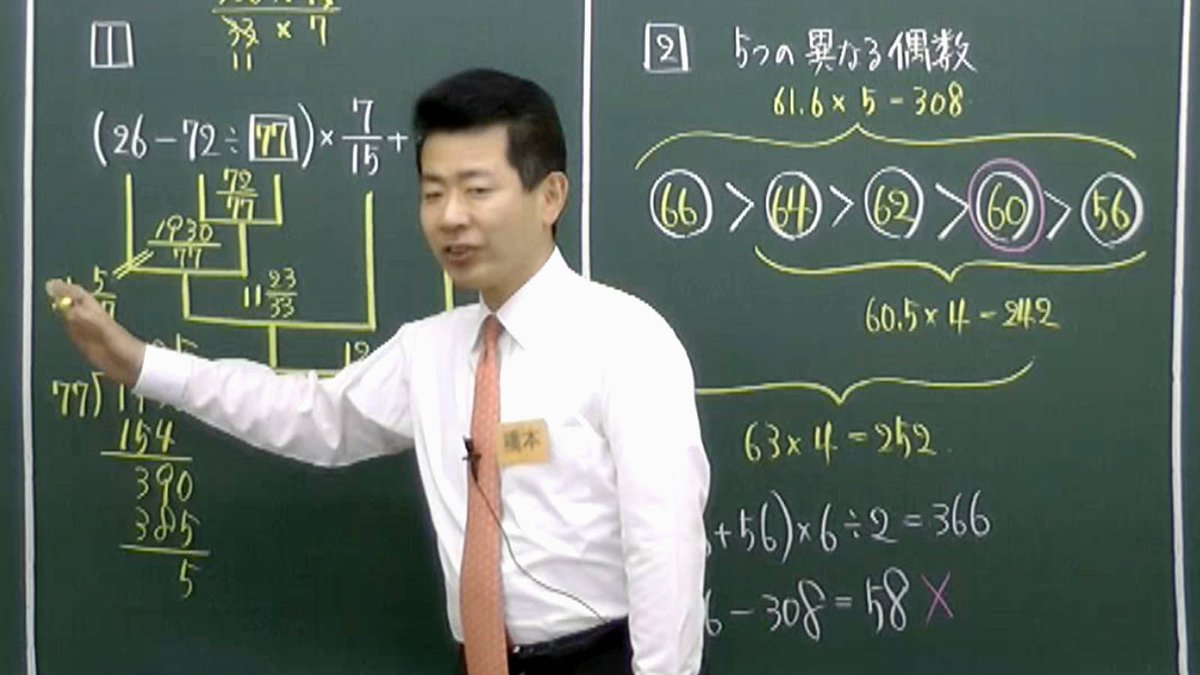 33 × 7
11
1
(26 − 72 ÷ 77) × 7/15 +
72/77
1930/77
5
11 23/33
77)
154
390
385
5
2 5つの異なる偶数
61.6 × 5 − 308
66 > 64 > 62 > 60 > 56
60.5 × 4 − 242
63 × 4 = 252
+56) × 6 ÷ 2 = 366
6 − 308 = 58 ×
橋本